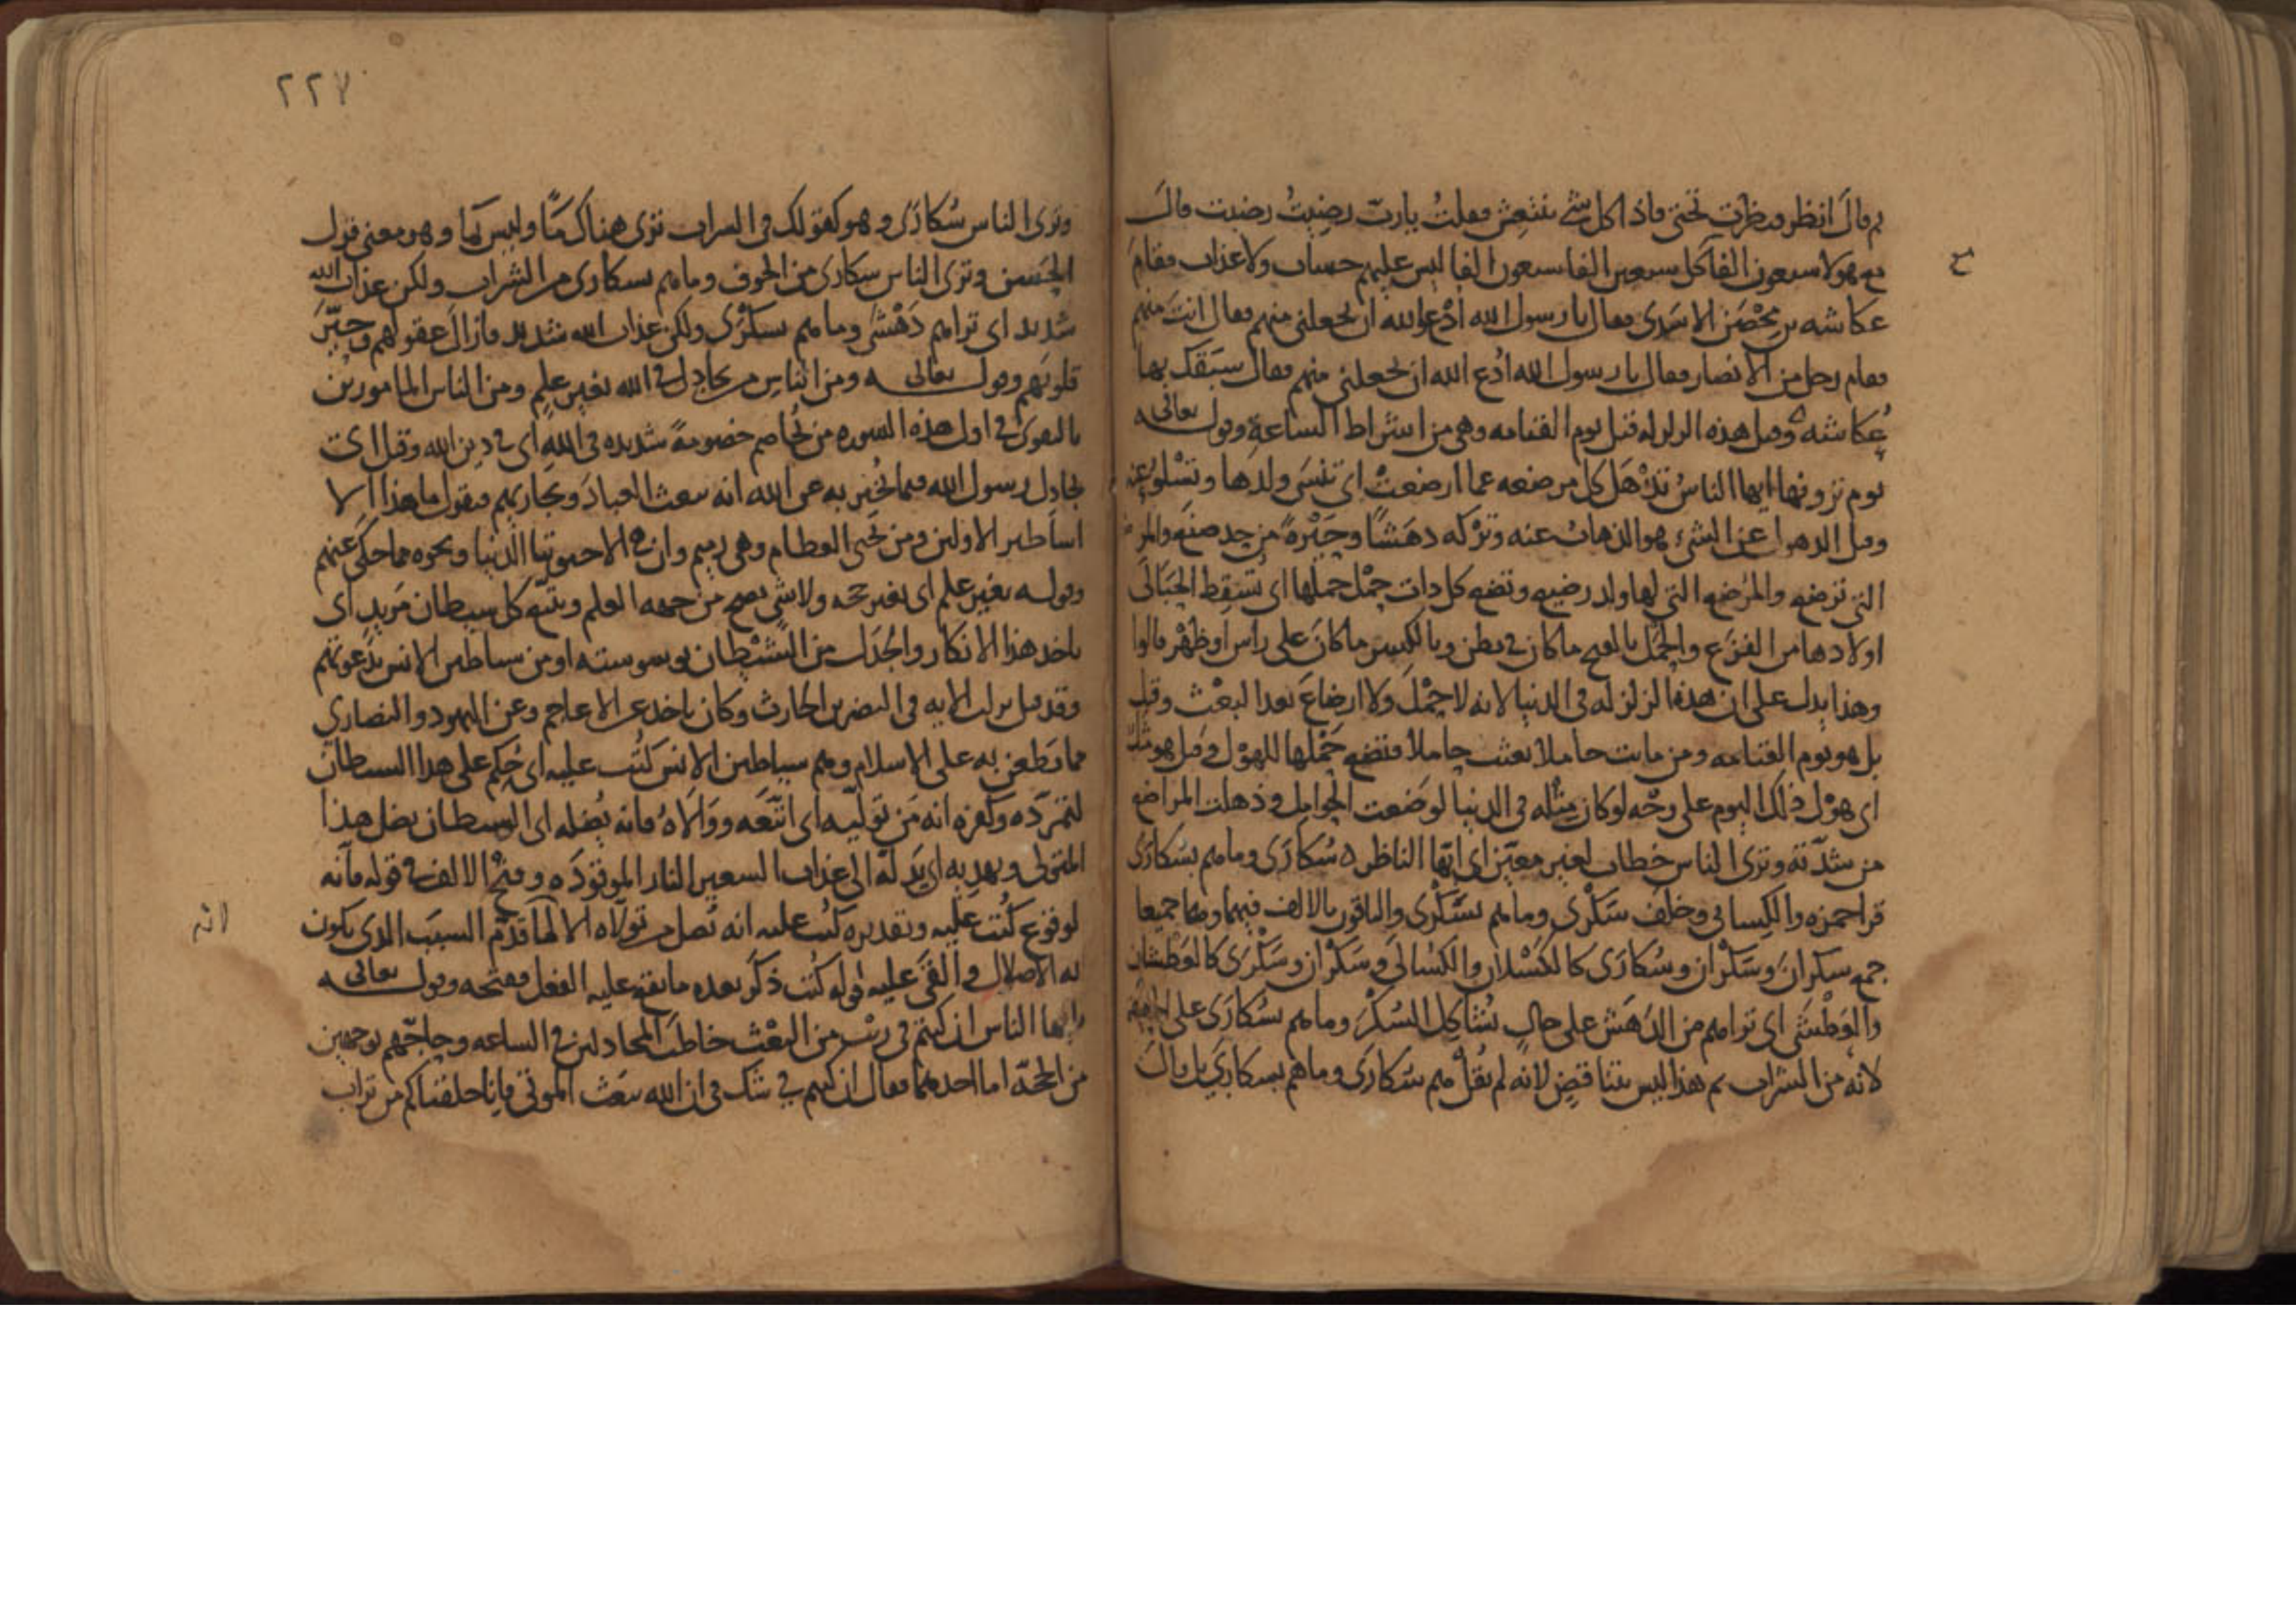 ثم قال انظر فنظرت تحتي فاذا كل شئ ينتعش فقلت يا رب رضيت رضيت قال
مع هولا سبعون الفا كل سبعين الفا سبعون الفا ليس عليهم حساب ولا عذاب فقام
ح
عكاشه بن محصن الاسدي فقال يا رسول الله ادع الله ان يجعلني منهم فقال انت منهم
فقام رجل من الانصار فقال يا رسول الله ادع الله ان يجعلني منهم فقال سبقك بها
عكاشة وقيل هذه الزلزله قبل يوم القيامه وهي من اشراط الساعة وقوله تعالى
يوم ترونها ايها الناس تذهل كل مرضعه عما ارضعت اي تنسى ولدها وتسلو عنه
وقيل الذهول عن الشيء هو الذهاب عنه وتركه دهشا وحيرة من حد صنع والمرضعة
التي ترضع والمرضع التي لها ولد رضيع وتضع كل ذات حمل حملها اي تسقط الحبالى
اولادها من الفزع والحمل بالفتح ما كان في بطن وبالكسر ما كان على راس او ظهر قالوا
وهذا يدل على ان هذه الزلزله في الدنيا لانه لا حمل ولا ارضاع بعد البعث وقيل
بل هو يوم القيامه ومن ماتت حاملا تبعث حاملا فتضع حملها للهول وقيل هو مثل
اي هول ذلك اليوم على وجه لو كان مثله في الدنيا لوضعت الحوامل وذهلت المراضع
من شدته وترى الناس خطاب لغير معين اي ايها الناظر سكارى وما هم بسكارى
قرا حمزه والكسائي وخلف سكرى وما هم بسكرى والباقون بالالف فيهما وهما جميعا
جمع سكران وسكران وسكارى كالكسلان والكسالى وسكران وسكرى كالعطشان
والعطشى اي تراهم من الدهش على حال تشاكل السكر وما هم بسكارى على
لانه من الشراب ثم هذا ليس بتناقض لانه لم يقل هم سكارى وما هم بسكارى بل قال
٢٢٧
وترى الناس سكارى وهو كقولك في السراب ترى هناك ماء وليس بماء وهو معنى قول
الحسن وترى الناس سكارى من الخوف وما هم بسكارى من الشراب ولكن عذاب الله
شديد اي تراهم دهشى وما هم بسكرى ولكن عذاب الله شديد فازال عقولهم وحير
قلوبهم وقوله تعالى ومن الناس من يجادل في الله بغير علم ومن الناس المامورين
بالتقوى في اول هذه السوره من يخاصم خصومة شديده في الله اي في دين الله وقيل اي
يجادل رسول الله فيما يخبر به عن الله انه يبعث العباد ويجازيهم فيقول ما هذا الا
اساطير الاولين ومن يحي العظام وهي رميم وان هي الا حيوتنا الدنيا ونحوه مما حكى عنهم
وقوله بغير علم اي بغير حجه ولا شي يصح من جهه العلم ويتبع كل شيطان مريد اي
ياخذ هذا الانكار والجدال من الشيطان بوسوسته او من شياطين الانس بدعوتهم
وقد قيل نزلت الايه في النضر بن الحارث وكان ياخذ عن الاعاجم وعن اليهود والنصارى
ما يطعن به على الاسلام وهم شياطين الانس كتب عليه اي حكم على هذا الشيطان
لتمرده وكفره انه من توليه اي اتبعه ووالاه فانه يضله اي الشيطان يضل هذا
المتولي ويهديه اي يدله الى عذاب السعير النار الموقوده وفتح الالف في قوله فانه
لوقوع كتب عليه وتقديره كتب عليه انه يضل من تولاه الا لما قدم السبب الذي يكون
لانه
به الاضلال والقي عليه قوله كتب ذكر بعده ما يقع عليه الفعل ففتحه وقوله تعالى
يا ايها الناس ان كنتم في ريب من البعث خاطب المجادلين في الساعه وحاجهم بوجهين
من الحجة اما احدهما فقال ان كنتم في شك في ان الله يبعث الموتى فانا خلقناكم من تراب